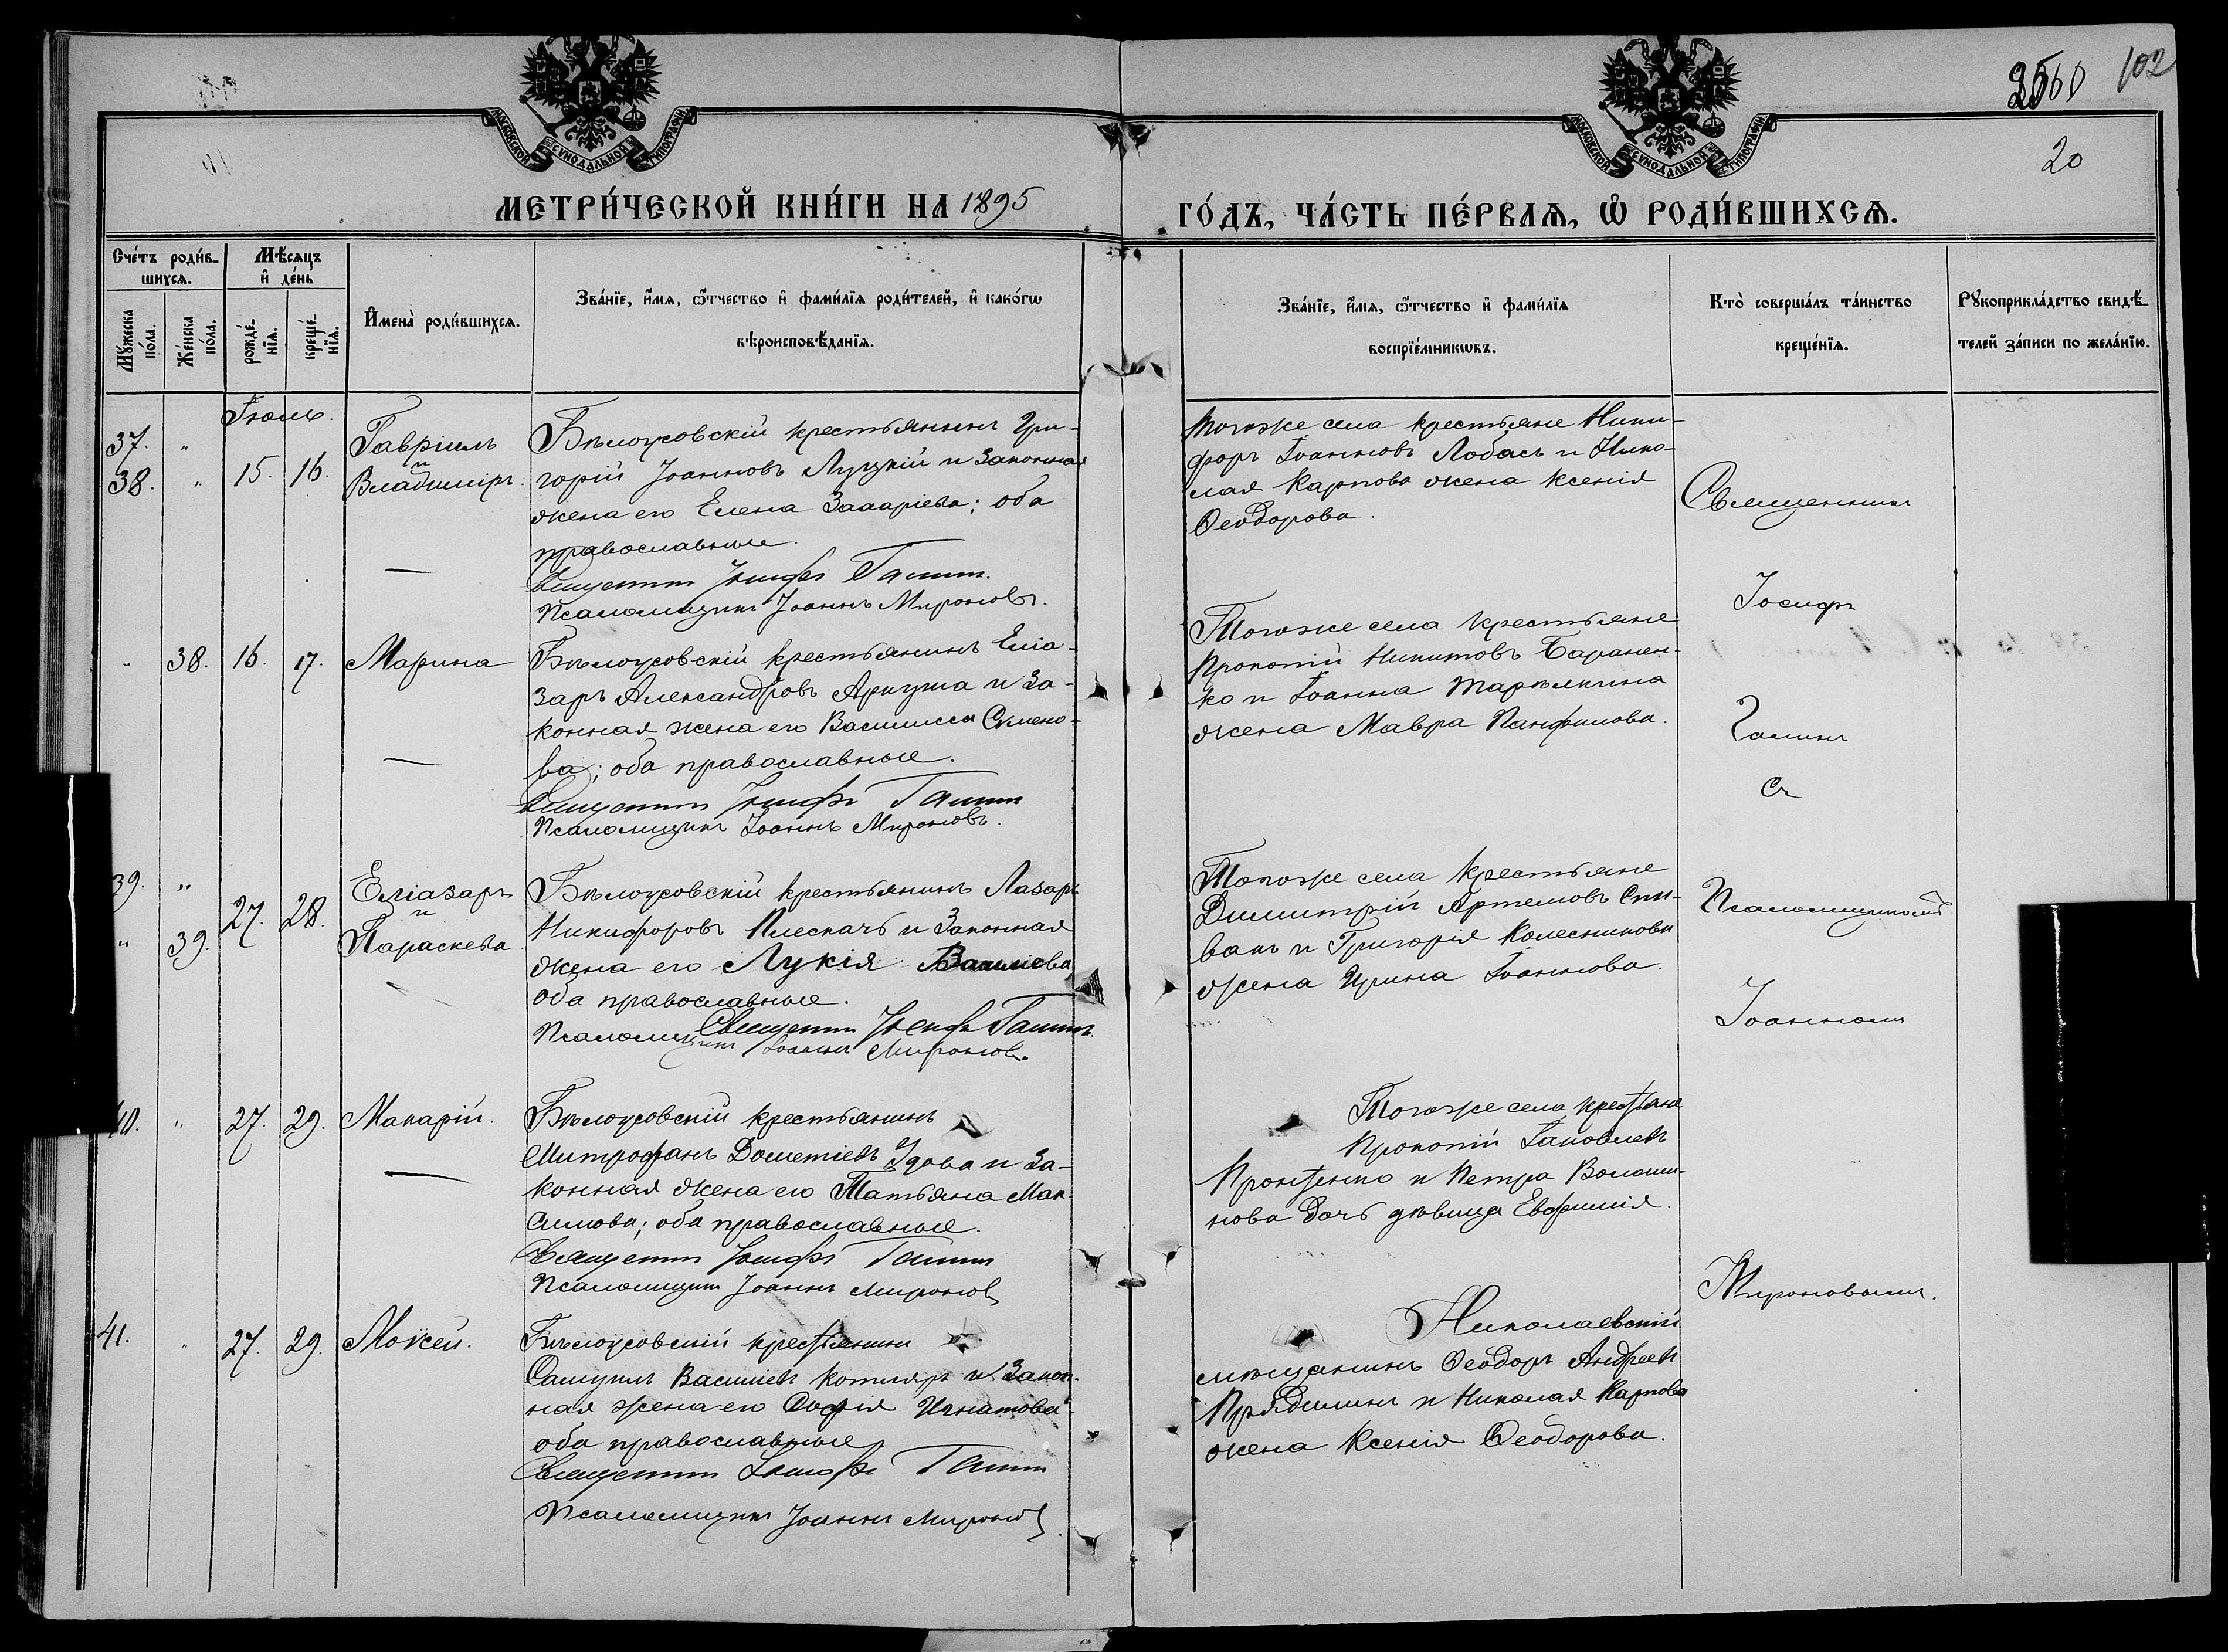 102
20
МОСКОВСКОЙ СѴНОДАЛЬНОЙ ТИПОГРАФІИ
МОСКОВСКОЙ СѴНОДАЛЬНОЙ ТИПОГРАФІИ
МЕТРИ́ЧЕСКОЙ КНИ́ГИ НА 1895
ГО́ДЪ, ЧА́СТЬ ПЕ́РВАѦ, Ѡ РОДИ́ВШИХСѦ.
Сче́тъ роди́в-
шихсѧ.
Мѣ́сяцъ
и҆ де́нь
Мꙋ́жеска
по́ла.
Же́нска
по́ла.
рожде́-
нїѧ.
креще́-
нїѧ.
И҆мена̀ роди́вшихсѧ.
Зва́нїе, и҆́мѧ, ѻ҆́тчество и҆ фами́лїѧ роди́телей, и҆ како́гѡ
вѣроисповѣ́данїѧ.
Зва́нїе, и҆́мѧ, ѻ҆́тчество и҆ фами́лїѧ
воспрїе́мникѡвъ.
Кто̀ соверша́лъ та́инство
креще́нїѧ.
Рꙋкоприкла́дство свидѣ́-
телей за́писи по жела́нїю.
Іюль.
37. " Гавріилъ
и
38. " 15. 16. Владиміръ.
Бѣлоусовскій крестьянинъ Гри-
горій Іоанновъ Луцкій и законная
жена его Елена Захаріева; оба
православные.
Священникъ Іосифъ Галинъ.
Псаломщикъ Іоаннъ Мироновъ.
Тогоже села крестьяне Ники-
форъ Іоанновъ Лобасъ и Нико-
лая Карпова жена Ксенія
Ѳеодорова.
Священникъ
Іосифъ
Галинъ
Съ
Псаломщикомъ
Іоанномъ
Мироновымъ.
" 38. 16. 17. Марина
Бѣлоусовскій крестьянинъ Еліа-
заръ Александровъ Аркуша и за-
конная жена его Василисса
ва; оба православные.
Священникъ Іосифъ Галинъ
Псаломщикъ Іоаннъ Мироновъ.
Тогоже села крестьяне
Прокопій Никитовъ Баранен-
ко и Іоанна
жена Мавра Панфилова.
39. " Еліазаръ
и
" 39. 27. 28. Параскева.
Бѣлоусовскій крестьянинъ Лазарь
Никифоровъ Плескачъ и законная
жена его Лукія Василіева
оба православные.
Священникъ Іосифъ Галинъ.
Псаломщикъ Іоаннъ Мироновъ.
Тогоже села крестьяне
Димитрій Артемовъ Спи-
вакъ и Григорія Колесникова
жена Ирина Іоаннова.
40. " 27. 29. Макарій.
Бѣлоусовскій крестьянинъ
Митрофанъ Дометіевъ Удова и за-
конная жена его Татьяна Мак-
симова; оба православные.
Священникъ Іосифъ Галинъ
Псаломщикъ Іоаннъ Мироновъ
Тогоже села крестьяне
Прокопій Іаковлевъ
Проценко и Петра Волоши-
нова дочь дѣвица Евфимія.
41. " 27. 29. Моисей.
Бѣлоусовскій крестьянинъ
Самуилъ Василіевъ Котляръ и закон-
ная жена его Софія Игнатова
оба православные
Священникъ Іосифъ Галинъ
Псаломщикъ Іоаннъ Мироновъ
Николаевскій
мѣщанинъ Ѳеодоръ Андреевъ
Прядилинъ и Николая Карпова
жена Ксенія Ѳеодорова.